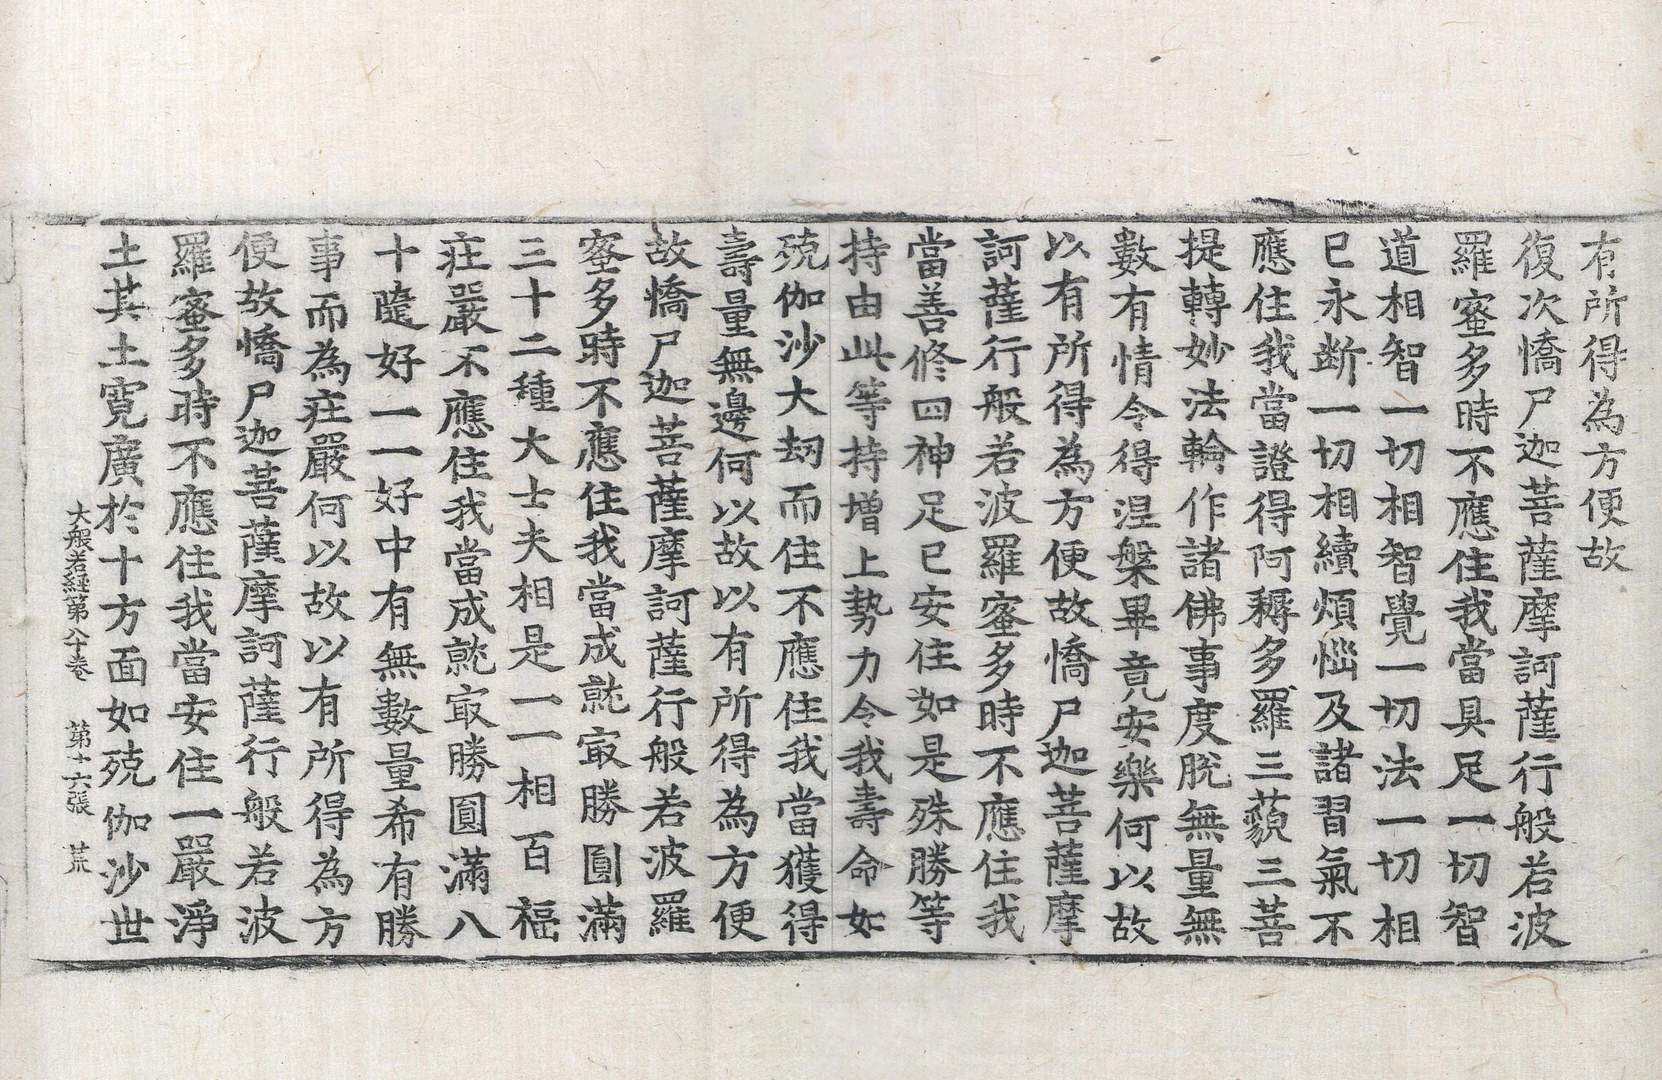 有所得為方便故
復次憍尸迦菩薩摩訶薩行般若波
羅蜜多時不應住我當具足一切智
道相智一切相智覺一切法一切相
已永斷一切相續煩惱及諸習氣不
應住我當證得阿耨多羅三藐三菩
提轉妙法輪作諸佛事度脫無量無
數有情令得涅槃畢竟安樂何以故
以有所得為方便故憍尸迦菩薩摩
訶薩行般若波羅蜜多時不應住我
當善修四神足已安住如是殊勝等
持由此等持增上勢力令我壽命如
殑伽沙大劫而住不應住我當獲得
壽量無邊何以故以有所得為方便
故憍尸迦菩薩摩訶薩行般若波羅
蜜多時不應住我當成就㝡勝圓滿
三十二種大士夫相是一一相百福
莊嚴不應住我當成就㝡勝圓滿八
十隨好一一好中有無數量希有勝
事而為莊嚴何以故以有所得為方
便故憍尸迦菩薩摩訶薩行般若波
羅蜜多時不應住我當安住一嚴淨
土其土寬廣於十方面如殑伽沙世
大般若經第八十卷 第十六張 荒